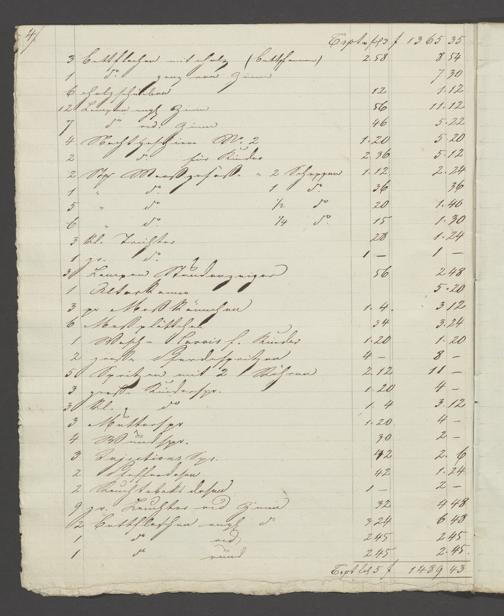 4
f 1365 35
3 Bettflaschen mit holz 2.58 8 54
1 do. ganz von Zinn 7 30
6 12 1.12
12 Lampen engl. Zinn 56 11.12
7 do ord. Zinn 46 5.22
4 Nachtgeschirre No. 2 1.20 5.20
2 do für Kinder 2.36 5.12
2 2 Schoppen 1.12 2.24
1 " do. 1 do 36 36
5 " do ½ do 20 1.40
6 " do. ¼ do. 15 1.30
3 Kl. Trichter 28 1.24
1 gr. do. 1 — 1 —
3 Lampen Stundenzeiger 56 2 48
1 5.20
3 pr Meßkännchen 1.4. 3.12
6 Meßplättchen 34 3.24
1 f. Kinder 1.20 1.20
2 große Pferdespritzen 4 — 8 —
5 Spritzen mit 2 Röhren 2.12 11 —
3 große Kinderspr. 1.20 4 —
3 Kl. do 1.4 3.12
3 Mutterspr 1.20 4 —
4 Wundspr. 30 2 —
3 Injections Spr. 42 2.6
2 42 1.24
2 Rauchtabakdosen 1 — 2 —
9 gr. Leuchter ord Zinn 32 4 48
2 Bettflaschen engl do 3 24 6 48
1 do ord 2 45 2 45
1 do rund 2 45 2.45.
f 1439 43